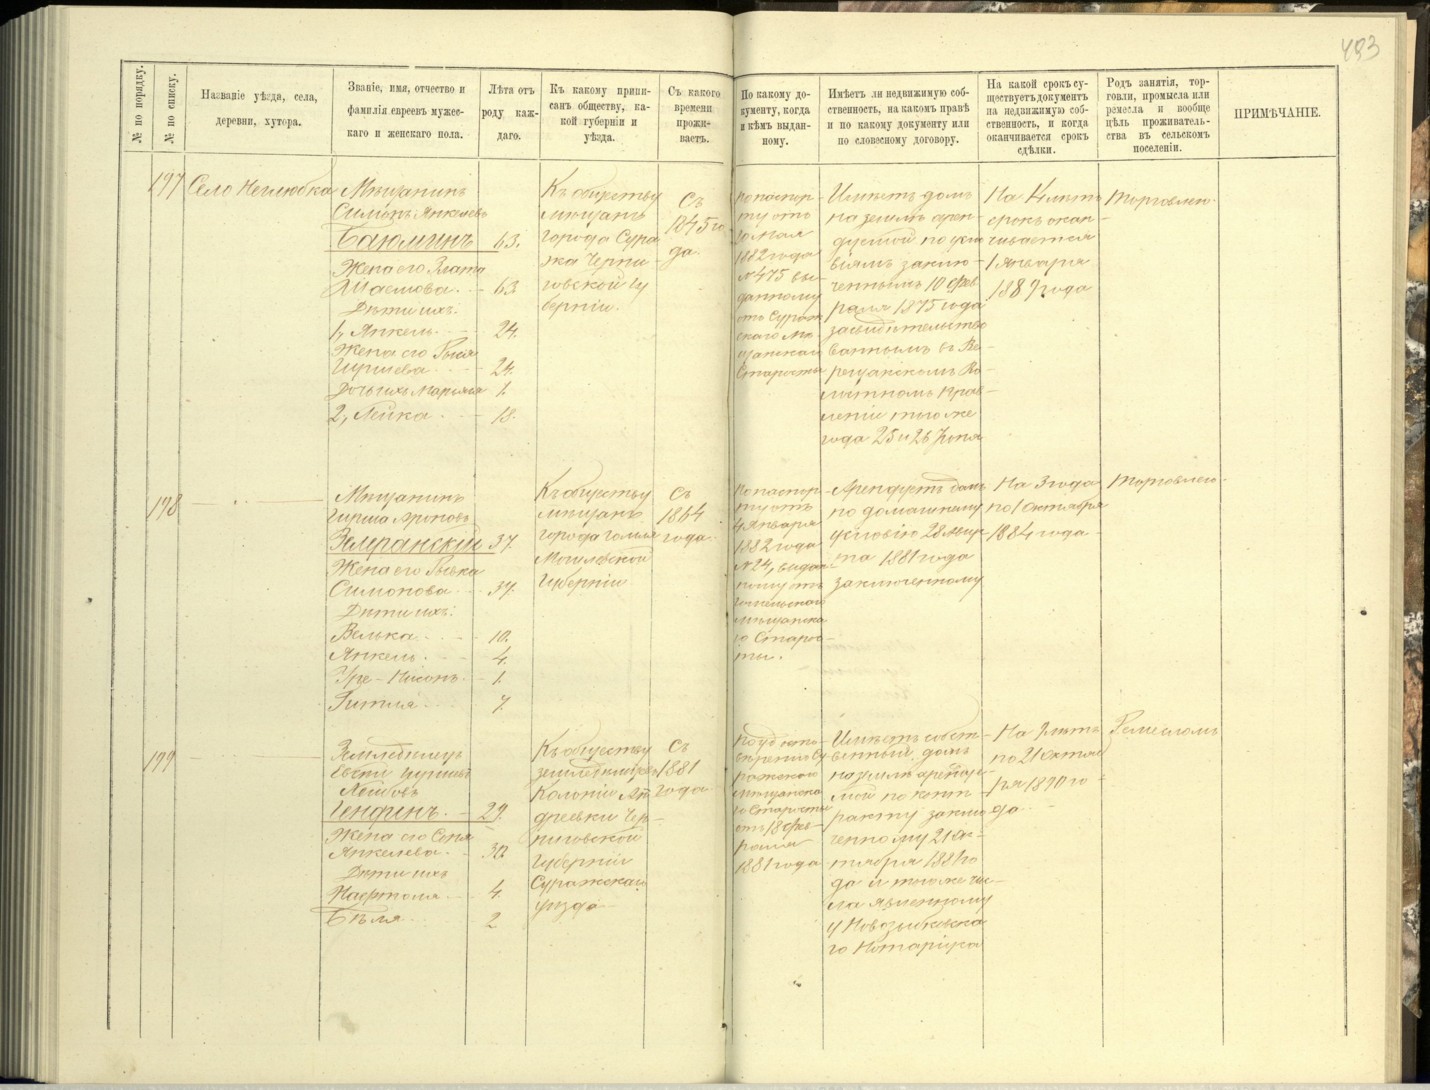 493
№ по порядку.
№ по списку.
Названіе уѣзда, села,
деревни, хутора.
Званіе, имя, отчество и
фамилія евреевъ мужес-
каго и женскаго пола.
Лѣта отъ
роду каж-
даго.
Къ какому припи-
санъ обществу, ка-
кой губерніи и
уѣзда.
Съ какого
времени
прожи-
ваетъ.
По какому до-
кументу, когда
и кѣмъ выдан-
ному.
Имѣетъ ли недвижимую соб-
ственность, на какомъ правѣ
и по какому документу или
по словесному договору.
На какой срокъ су-
ществуетъ документъ
на недвижимую соб-
ственность, и когда
оканчивается срокъ
сдѣлки.
Родъ занятія, тор-
говли, промысла или
ремесла и вообще
цѣль проживатель-
ства въ сельскомъ
поселеніи.
ПРИМѢЧАНІЕ.
197
Село Неглюбка
Мѣщанинъ
Симонъ Янкелевъ
Баюминъ 63.
Жена его Злата
63.
Дѣти ихъ:
1, Янкель 24.
Жена его Рыся
Гиршева 24.
Дочь ихъ Марьяся 1.
2, Лейка 18.
Къ обществу
мѣщанъ
города Сура
жа Черни-
говской гу
берніи.
Съ
1845 го
да.
По паспор-
ту отъ
мая
1882 года
№475 вы-
данному
отъ Сураж
скаго Мѣ-
щанскаго
Старосты
Имѣетъ домъ
на землѣ арен-
дуемой по усло
віямъ заклю-
ченнымъ 10 Фев
раля 1875 года
засвидѣтельство
ваннымъ въ Ве-
Во-
лостномъ Прав-
леніи того же
года 25 и 26 Іюня
На 14 лѣтъ
срокъ окан-
чивается
1 Января
1889 года
Торговлею.
198
Мѣщанинъ
Гирша Ароновъ
37.
Жена его Рыська
Симонова 37.
Дѣти ихъ:
Велька 10.
Янкель. 4.
Нисонъ. 1.
Гитля 7.
Къ обществу
мѣщанъ
города Гомля
Могилевской
Губерніи
Съ
1864
года.
По паспор-
ту отъ
4 Января
1882 года
№24, выдан-
ному отъ
Гомельскаго
Мѣщанска
го Старос-
ты.
Арендуетъ домъ
по домашнему
условію 28 Авгус-
та 1881 года
заключенному
На 3 года
по 1 Октября
1884 года
Торговлею.
199
Земледѣлецъ
Лейбовъ
Циндинъ. 29.
Жена его Соня
Янкелева. 30.
Дѣти ихъ
Нафтоля 4.
Бѣля 2
Къ обществу
земледѣльцевъ
Колоніи Ан
дреевки Чер-
ниговской
Губерніи
Суражскаго
уѣзда
Съ
1881
года.
По удосто-
вѣренію Су
ражскаго
Мѣщанска
го Старосты
отъ 18 Фев-
раля
1881 года
Имѣетъ собст-
венный домъ
на землѣ арендуе-
мой по конт-
ракту заклю
ченному 21 Ок-
тября 1881 го
да и того же чис-
ла явленному
у Новозыбковска
го Нотаріуса
На 9 лѣтъ
по 21 Октяб
ря 1890 го-
да
Ремесломъ